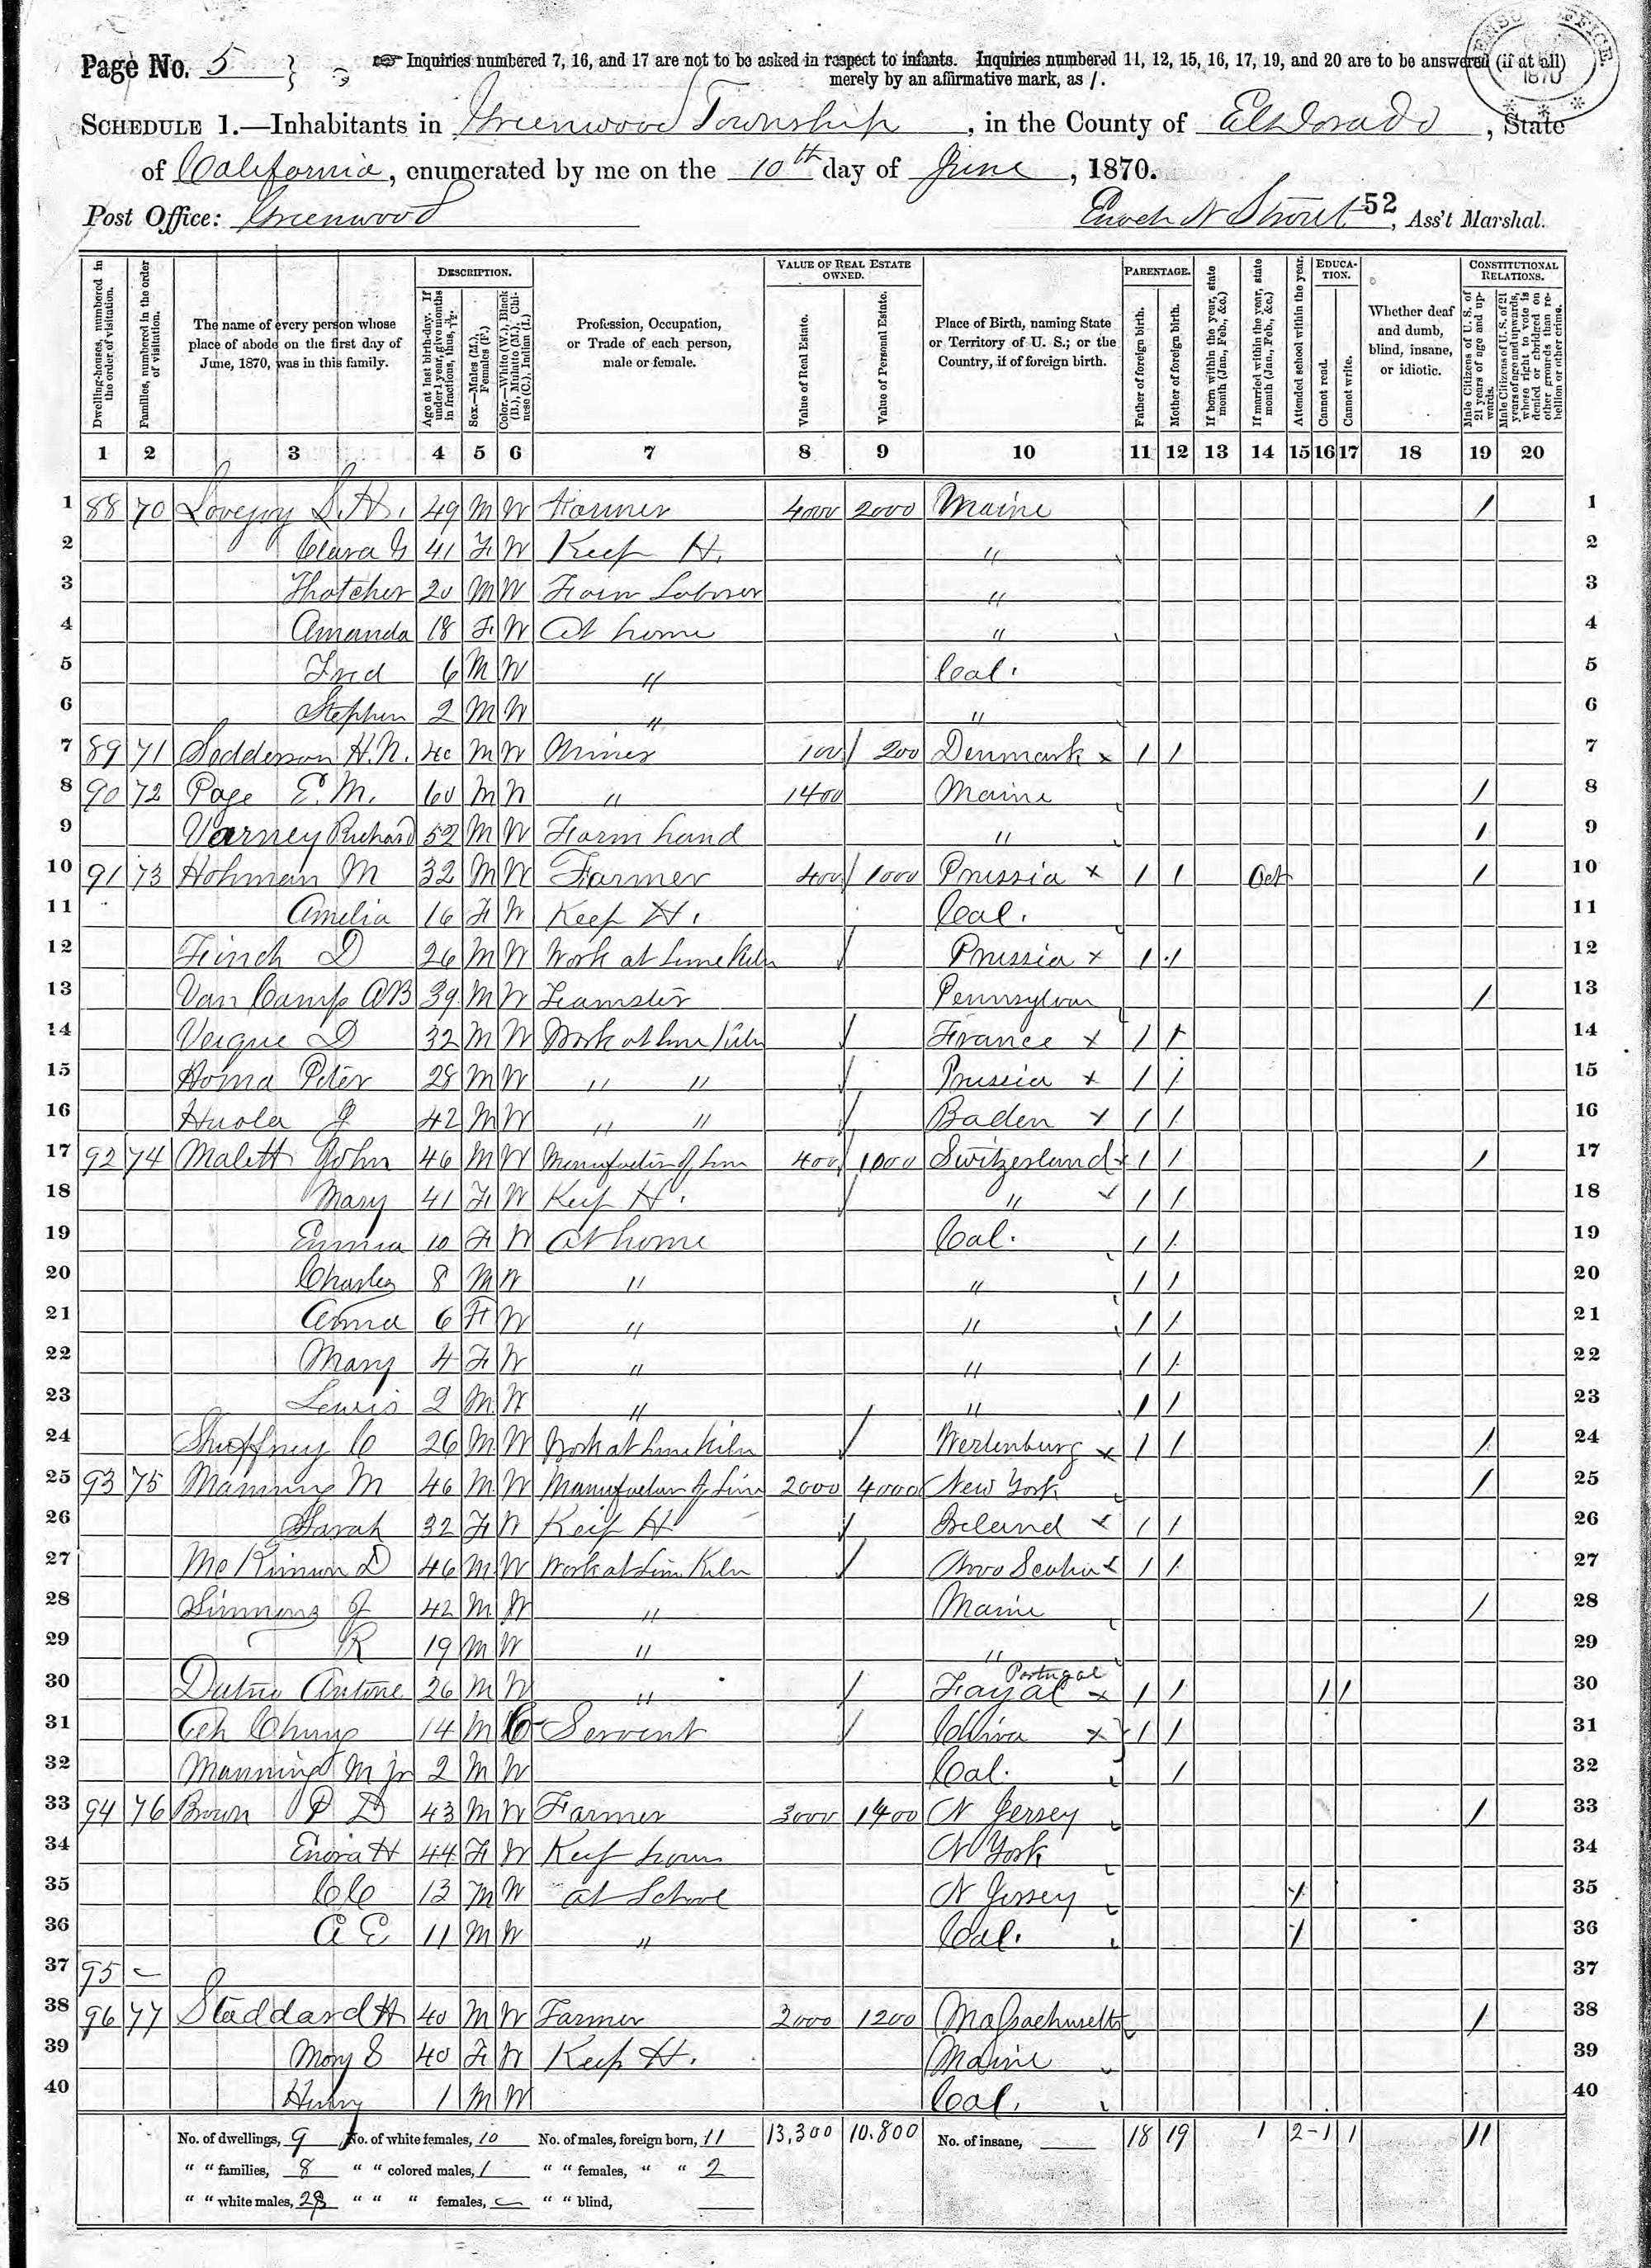 Page No. 5 Inquiries numbered 7, 16, and 17 are not to be asked in respect to infants. Inquiries numbered 11, 12, 15, 16, 17, 19, and 20 are to be answered (if at all)
merely by an affirmative mark, as /.
CENSUS OFFICE. 1870
SCHEDULE 1.—Inhabitants in Greenwood Township, in the County of El Dorado, State
of California, enumerated by me on the 10th day of June, 1870.
Post Office: Greenwood
Enoch N Strout 52, Ass't Marshal.
Dwelling-houses, numbered in the order of visitation.
Families, numbered in the order of visitation.
The name of every person whose place of abode on the first day of June, 1870, was in this family.
DESCRIPTION.
Age at last birth-day. If under 1 year, give months in fractions, thus, 3/12.
Sex.—Males (M.), Females (F.)
Color.—White (W.), Black (B.), Mulatto (M.), Chinese (C.), Indian (I.)
Profession, Occupation, or Trade of each person, male or female.
VALUE OF REAL ESTATE OWNED.
Value of Real Estate.
Value of Personal Estate.
Place of Birth, naming State or Territory of U. S.; or the Country, if of foreign birth.
PARENTAGE.
Father of foreign birth.
Mother of foreign birth.
If born within the year, state month (Jan., Feb., &c.)
If married within the year, state month (Jan., Feb., &c.)
Attended school within the year.
EDUCATION.
Cannot read.
Cannot write.
Whether deaf and dumb, blind, insane, or idiotic.
CONSTITUTIONAL RELATIONS.
Male Citizens of U. S. of 21 years of age and upwards.
Male Citizens of U. S. of 21 years of age and upwards, whose right to vote is denied or abridged on other grounds than rebellion or other crime.
1 2 3 4 5 6 7 8 9 10 11 12 13 14 15 16 17 18 19 20
1 88 70 Lovejoy S. H. 49 M W Farmer 4000 2000 Maine / 1
2 Clara G 41 F W Keep H. " 2
3 Thatcher 20 M W Farm Laborer " 3
4 Amanda 18 F W At home " 4
5 Fred 6 M W " Cal. 5
6 Stephen 2 M W " " 6
7 89 71 H. N. 40 M W Miner 100 / 200 Denmark x / / 7
8 90 72 Page E. M. 60 M W " 1400 Maine / 8
9 Varney Richard 52 M W Farm hand " / 9
10 91 73 Hohman M 32 M W Farmer 400 / 1000 Prussia x / / Oct / 10
11 Amelia 16 F W Keep H. Cal. 11
12 Finch D 26 M W Work at Lime Kiln / Prussia x / / 12
13 Van Camp A B 39 M W Teamster Pennsylvan / 13
14 D 32 M W Work at Lime Kiln / France x / / 14
15 Homa Peter 28 M W " " / Prussia x / / 15
16 J 42 M W " " / Baden x / / 16
17 92 74 Malett John 46 M W of Lime 400 / 1000 Switzerland x / / / 17
18 Mary 41 F W Keep H. / " x / / 18
19 Emma 10 F W At home Cal. / / 19
20 Charles 8 M W " " / / 20
21 Anna 6 F W " " / / 21
22 Mary 4 F W " " / / 22
23 Lewis 2 M W " " / / 23
24 C 26 M W Work at Lime Kiln / Wertenburg x / / / 24
25 93 75 Manning M 46 M W of Lime 2000 4000 New York / 25
26 Sarah 32 F W Keep H / Ireland x / / 26
27 McKinnon D 46 M W Work at Lime Kiln / Nova Scotia x / / 27
28 Simmons J 42 M W " Maine / 28
29 R 19 M W " " 29
30 Antone 26 M W " / Fayal Portugal x / / / / 30
31 Ah Chung 14 M C Servent / China x / / 31
32 Manning M Jr 2 M W Cal. / 32
33 94 76 Brown P D 43 M W Farmer 3000 1400 N Jersey / 33
34 H 44 F W Keep house N York 34
35 C C 13 M W at School N Jersey / 35
36 A E 11 M W " Cal. / 36
37 95 – 37
38 96 77 Staddard H 40 M W Farmer 2000 1200 Massachusetts / 38
39 Mary S 40 F W Keep H. Maine 39
40 Henry 1 M W Cal. 40
No. of dwellings, 9 No. of white females, 10 No. of males, foreign born, 11 13,300 10.800 No. of insane, 18 19 1 2 1 1 11
" " families, 8 " " colored males, 1 " " females, " " 2
" " white males, 28 " " " females, – " " blind,